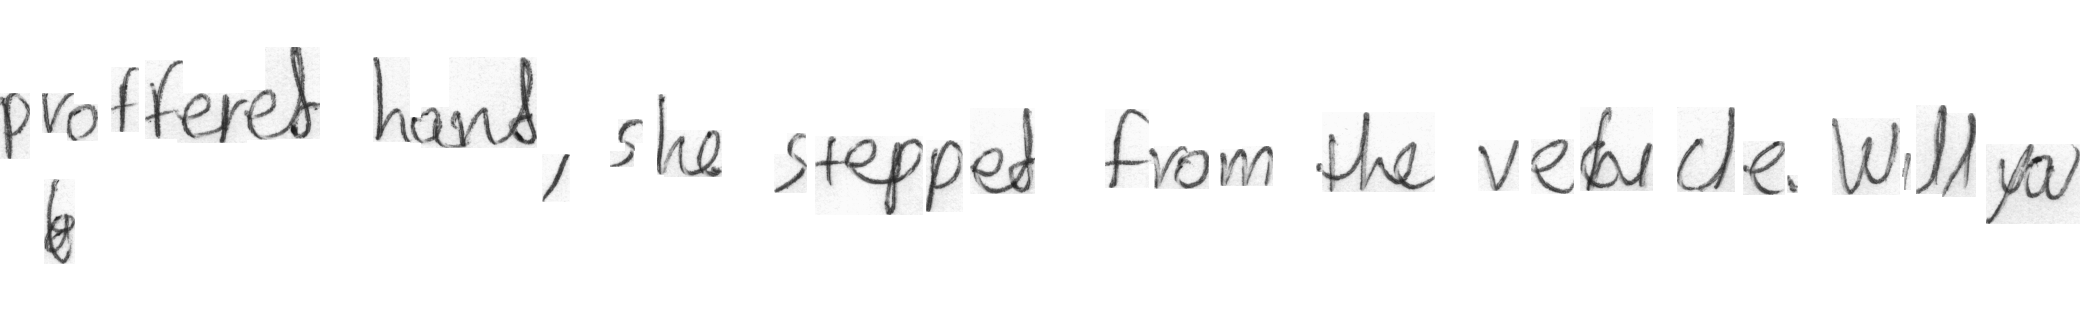 proffered hand, she stepped from the vehicle. Will you